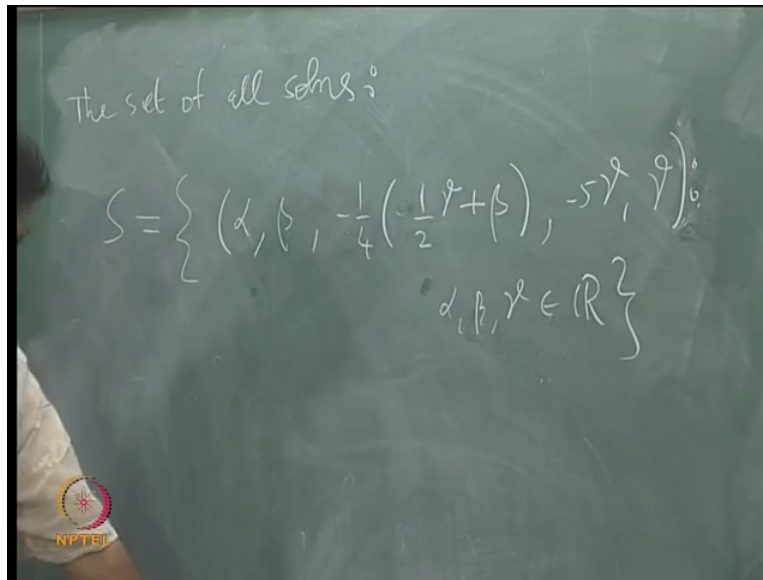 The set of all solns:
S = { (α, β, -1/4(-1/2 γ + β), -5γ, γ):
α, β, γ ∈ ℝ }
NPTEL